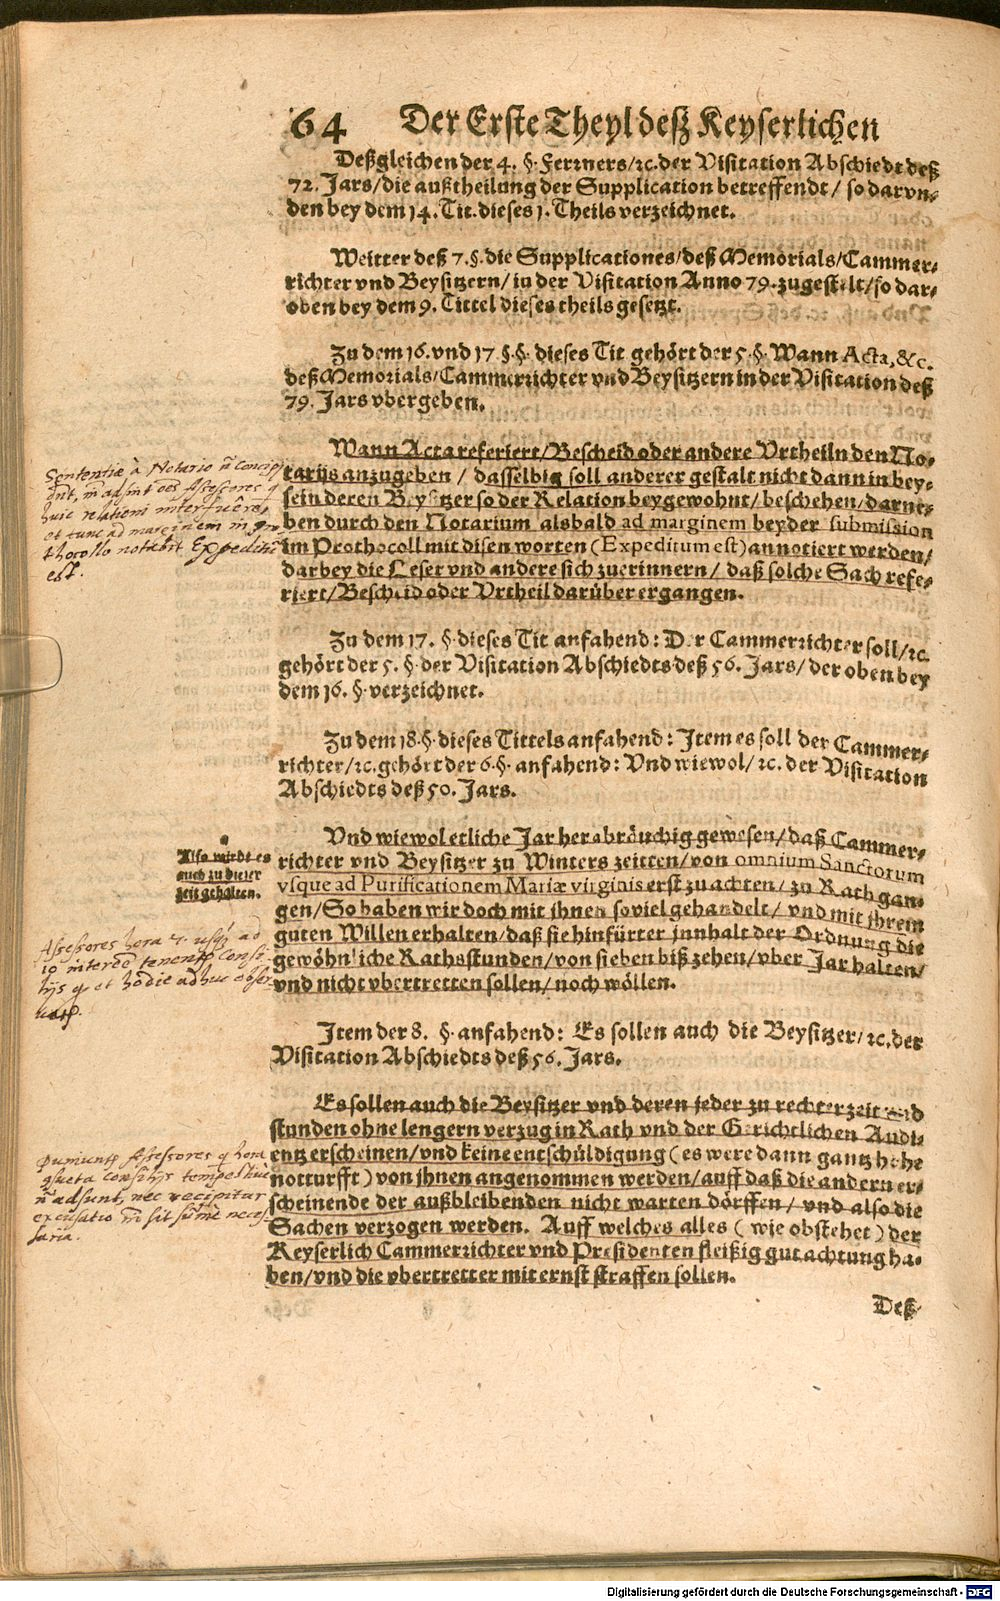 64 Der Erste Theyl deß Keyserlichen
Deßgleichen der 4. §. Ferrners/ꝛc. der Visitation Abschiedt deß
72. Jars/die außtheilung der Supplication betreffendt/ so darvn⸗
den bey dem 14. Tit. dieses 1. Theils verzeichnet.
Weitter deß 7. §. die Supplicationes/deß Memorials/Cammer⸗
richter vnd Beysitzern/in der Visitation Anno 79. zugestelt/so dar⸗
oben bey dem 9. Tittel dieses theils gesetzt.
Zu dem 16. vnd 17 §.§. dieses Tit gehört der 5. §. Wann Acta, &c.
deß Memorials/Cammerrichter vnd Beysitzern in der Visitation deß
79. Jars vbergeben.
Wann Acta referiert/Bescheid oder andere Vrtheiln den No⸗
tarijs anzugeben / dasselbig soll anderer gestalt nicht dann in bey⸗
sein deren Beysitzer so der Relation beygewohnt/beschehen/darne⸗
ben durch den Notarium alsbald ad marginem beyder submission
im Prothocoll mit disen worten (Expeditum est) annotiert werden/
darbey die Leser vnd andere sich zuerinnern/ daß solche Sach refe⸗
riert/Bescheid oder Vrtheil darüber ergangen.
Sententiæ à Notario
huic relationi interfuêre,
et tunc ad marginem in pro
thocollo
est.
Zu dem 17. §. dieses Tit anfahend: Der Cammerrichter soll/ꝛc.
gehört der 5. §. der Visitation Abschiedts deß 56. Jars/ der oben bey
dem 16. §. verzeichnet.
Zu dem 18. §. dieses Tittels anfahend: Item es soll der Cammer⸗
richter/ꝛc. gehört der 6. §. anfahend: Vnd wiewol/ ꝛc. der Visitation
Abschiedts deß 50. Jars.
Vnd wiewol etliche Jar herabräuchig gewesen/daß Cammer⸗
richter vnd Beysitzer zu Winters zeitten/von omnium Sanctorum
vsque ad Purificationem Mariæ virginis erst zu achten/ zu Rath gan⸗
gen/So haben wir doch mit ihnen soviel gehandelt/ vnd mit ihrem
guten Willen erhalten/daß sie hinfürter innhalt der Ordnung die
gewöhnliche Rathsstunden/von sieben biß zehen/vber Jar halten/
vnd nicht vbertretten sollen/noch wöllen.
Also wirdt es
auch zu dieser
zeit gehalten.
Assessores hora 7. usq; ad
10 interesse
et hodie adhuc obser
Item der 8. §. anfahend: Es sollen auch die Beysitzer/ ꝛc. der
Visitation Abschiedts deß 56. Jars.
Es sollen auch die Beysitzer vnd deren jeder zu rechter zeit vnd
stunden ohne lengern verzug in Rath vnd der Gerichtlichen Audi⸗
entz erscheinen/vnd keine entschüldigung (es were dann gantz hohe
notturfft) von ihnen angenommen werden/auff daß die andern er⸗
scheinende der außbleibenden nicht warten dörffen/ vnd also die
Sachen verzogen werden. Auff welches alles ( wie obstehet ) der
Keyserlich Cammerrichter vnd Presidenten fleißig gut achtung ha⸗
ben/vnd die vbertretter mit ernst straffen sollen.
Assessores q hora
tempestiue
adsunt, nec recipitur
excusatio
saria.
Deß
Digitalisierung gefördert durch die Deutsche Forschungsgemeinschaft - DFG